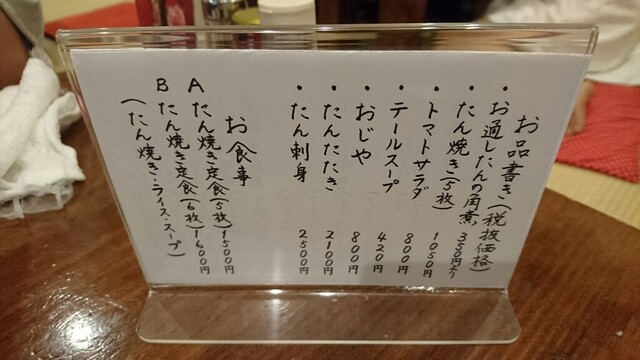 お品書き(税抜価格)
・お通したんの角煮 350円より
・たん焼き(5枚) 1050円
・トマトサラダ 800円
・テールスープ 420円
・おじや 800円
・たんたたき 2100円
・たん刺身 2500円
お食事
A たん焼き定食(5枚) 1500円
B たん焼き定食(6枚) 1600円
(たん焼き・ライス・スープ)